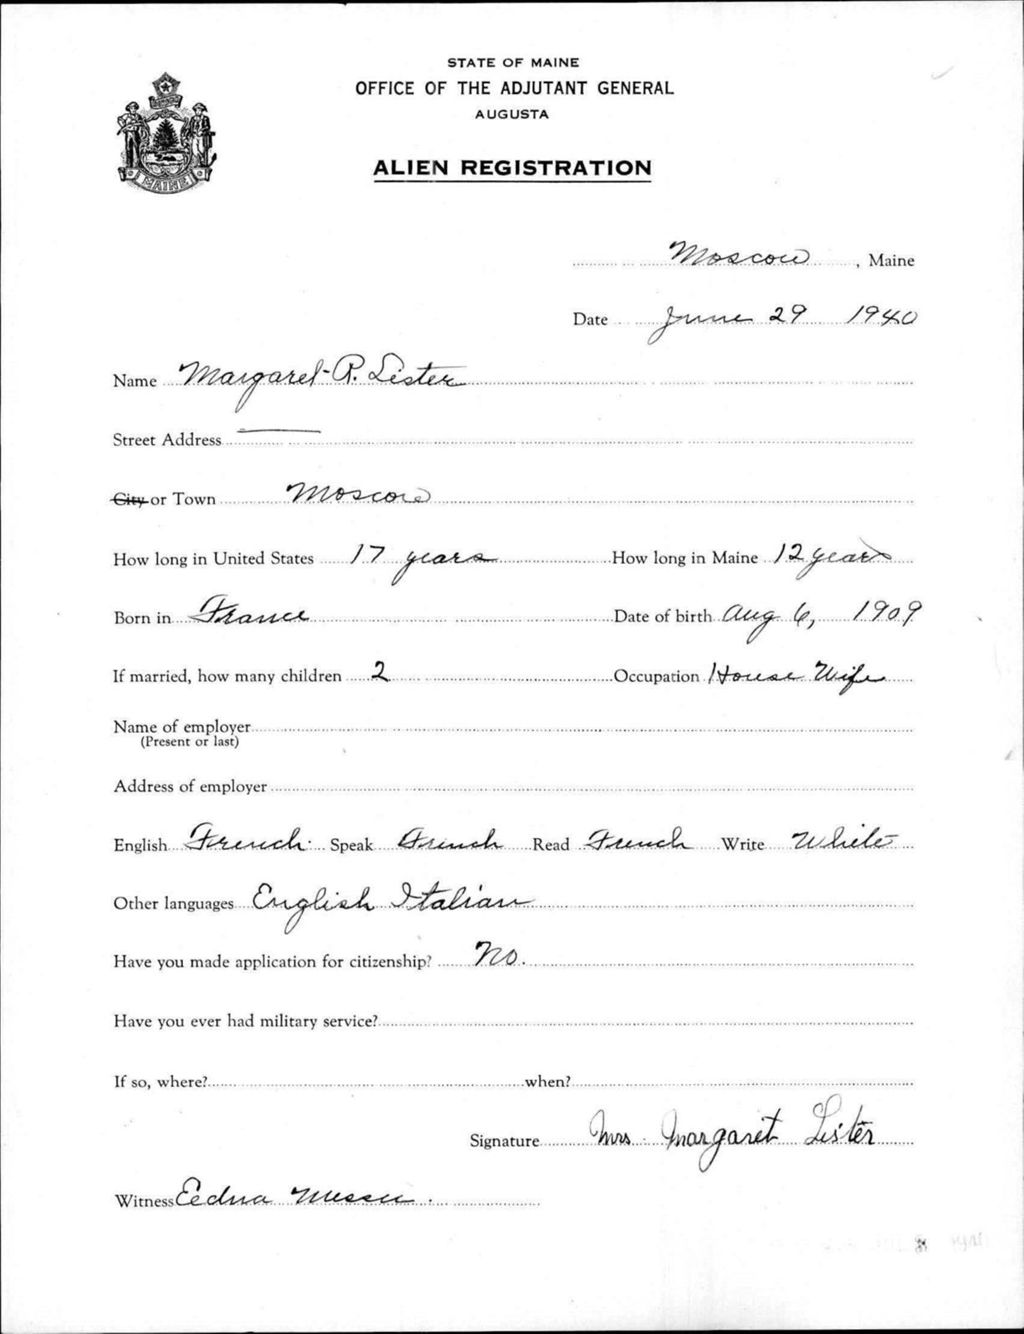 STATE OF MAINE
OFFICE OF THE ADJUTANT GENERAL
AUGUSTA
ALIEN REGISTRATION
MAINE
Moscow, Maine
Date June 29 1940
Name Margaret R. Lister
Street Address
City or Town Moscow
How long in United States 17 years How long in Maine 12 years
Born in France Date of birth Aug 6, 1909
If married, how many children 2 Occupation House Wife
Name of employer
(Present or last)
Address of employer
English French. Speak French Read French Write White
Other languages English Italian
Have you made application for citizenship? No.
Have you ever had military service?
If so, where? when?
Signature Mrs. Margaret Lister
Witness Eedna